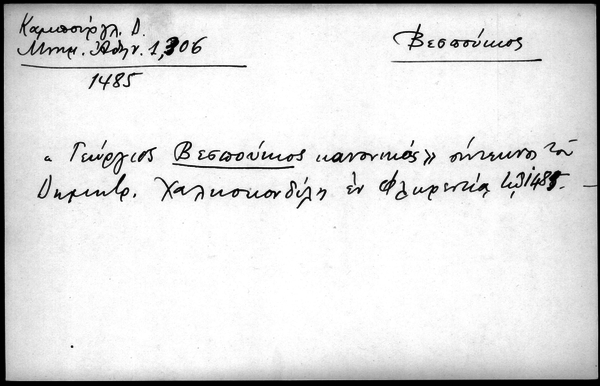 Καμπούργλ. Δ.
Μνημ. Ἀθην. 1,306
1485
Βεσπούκιος
« Γεώργιος Βεσπούκιος κανονικός» σύτεκνος τοῦ
Δημητρ. Χαλκοκονδύλη ἐν Φλωρεντίᾳ 1485. –